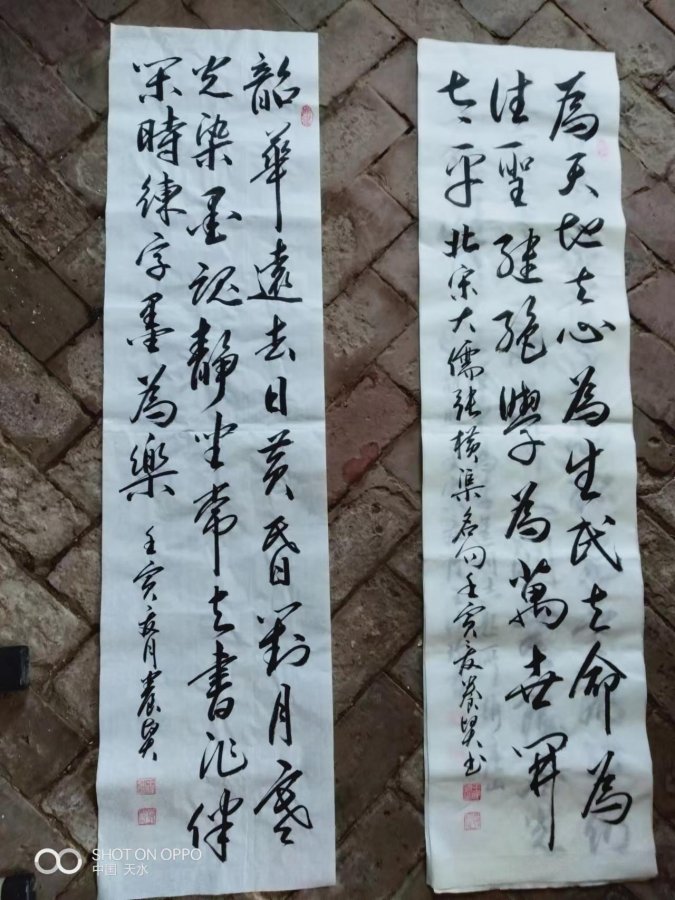 為天地立心為生民立命為
往聖繼絕學為萬世開
太平 北宋大儒張橫渠名句壬寅夏書
韶華遠去日黃昏對月寒
光染墨魂靜坐常以書作伴
閑時練字墨為樂 壬寅夏月
SHOT ON OPPO
中国 天水